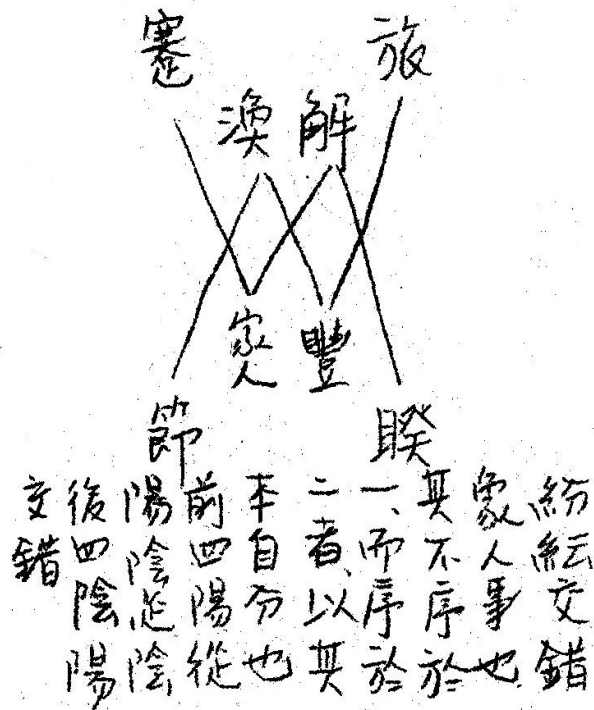 蹇 旅
渙 解
家人 豐
節 睽
紛紜交錯
象人事也
其不序於
一、而序於
二者、以其
本自分也
前四陽從
陽陰從陰
後四陰陽
交錯